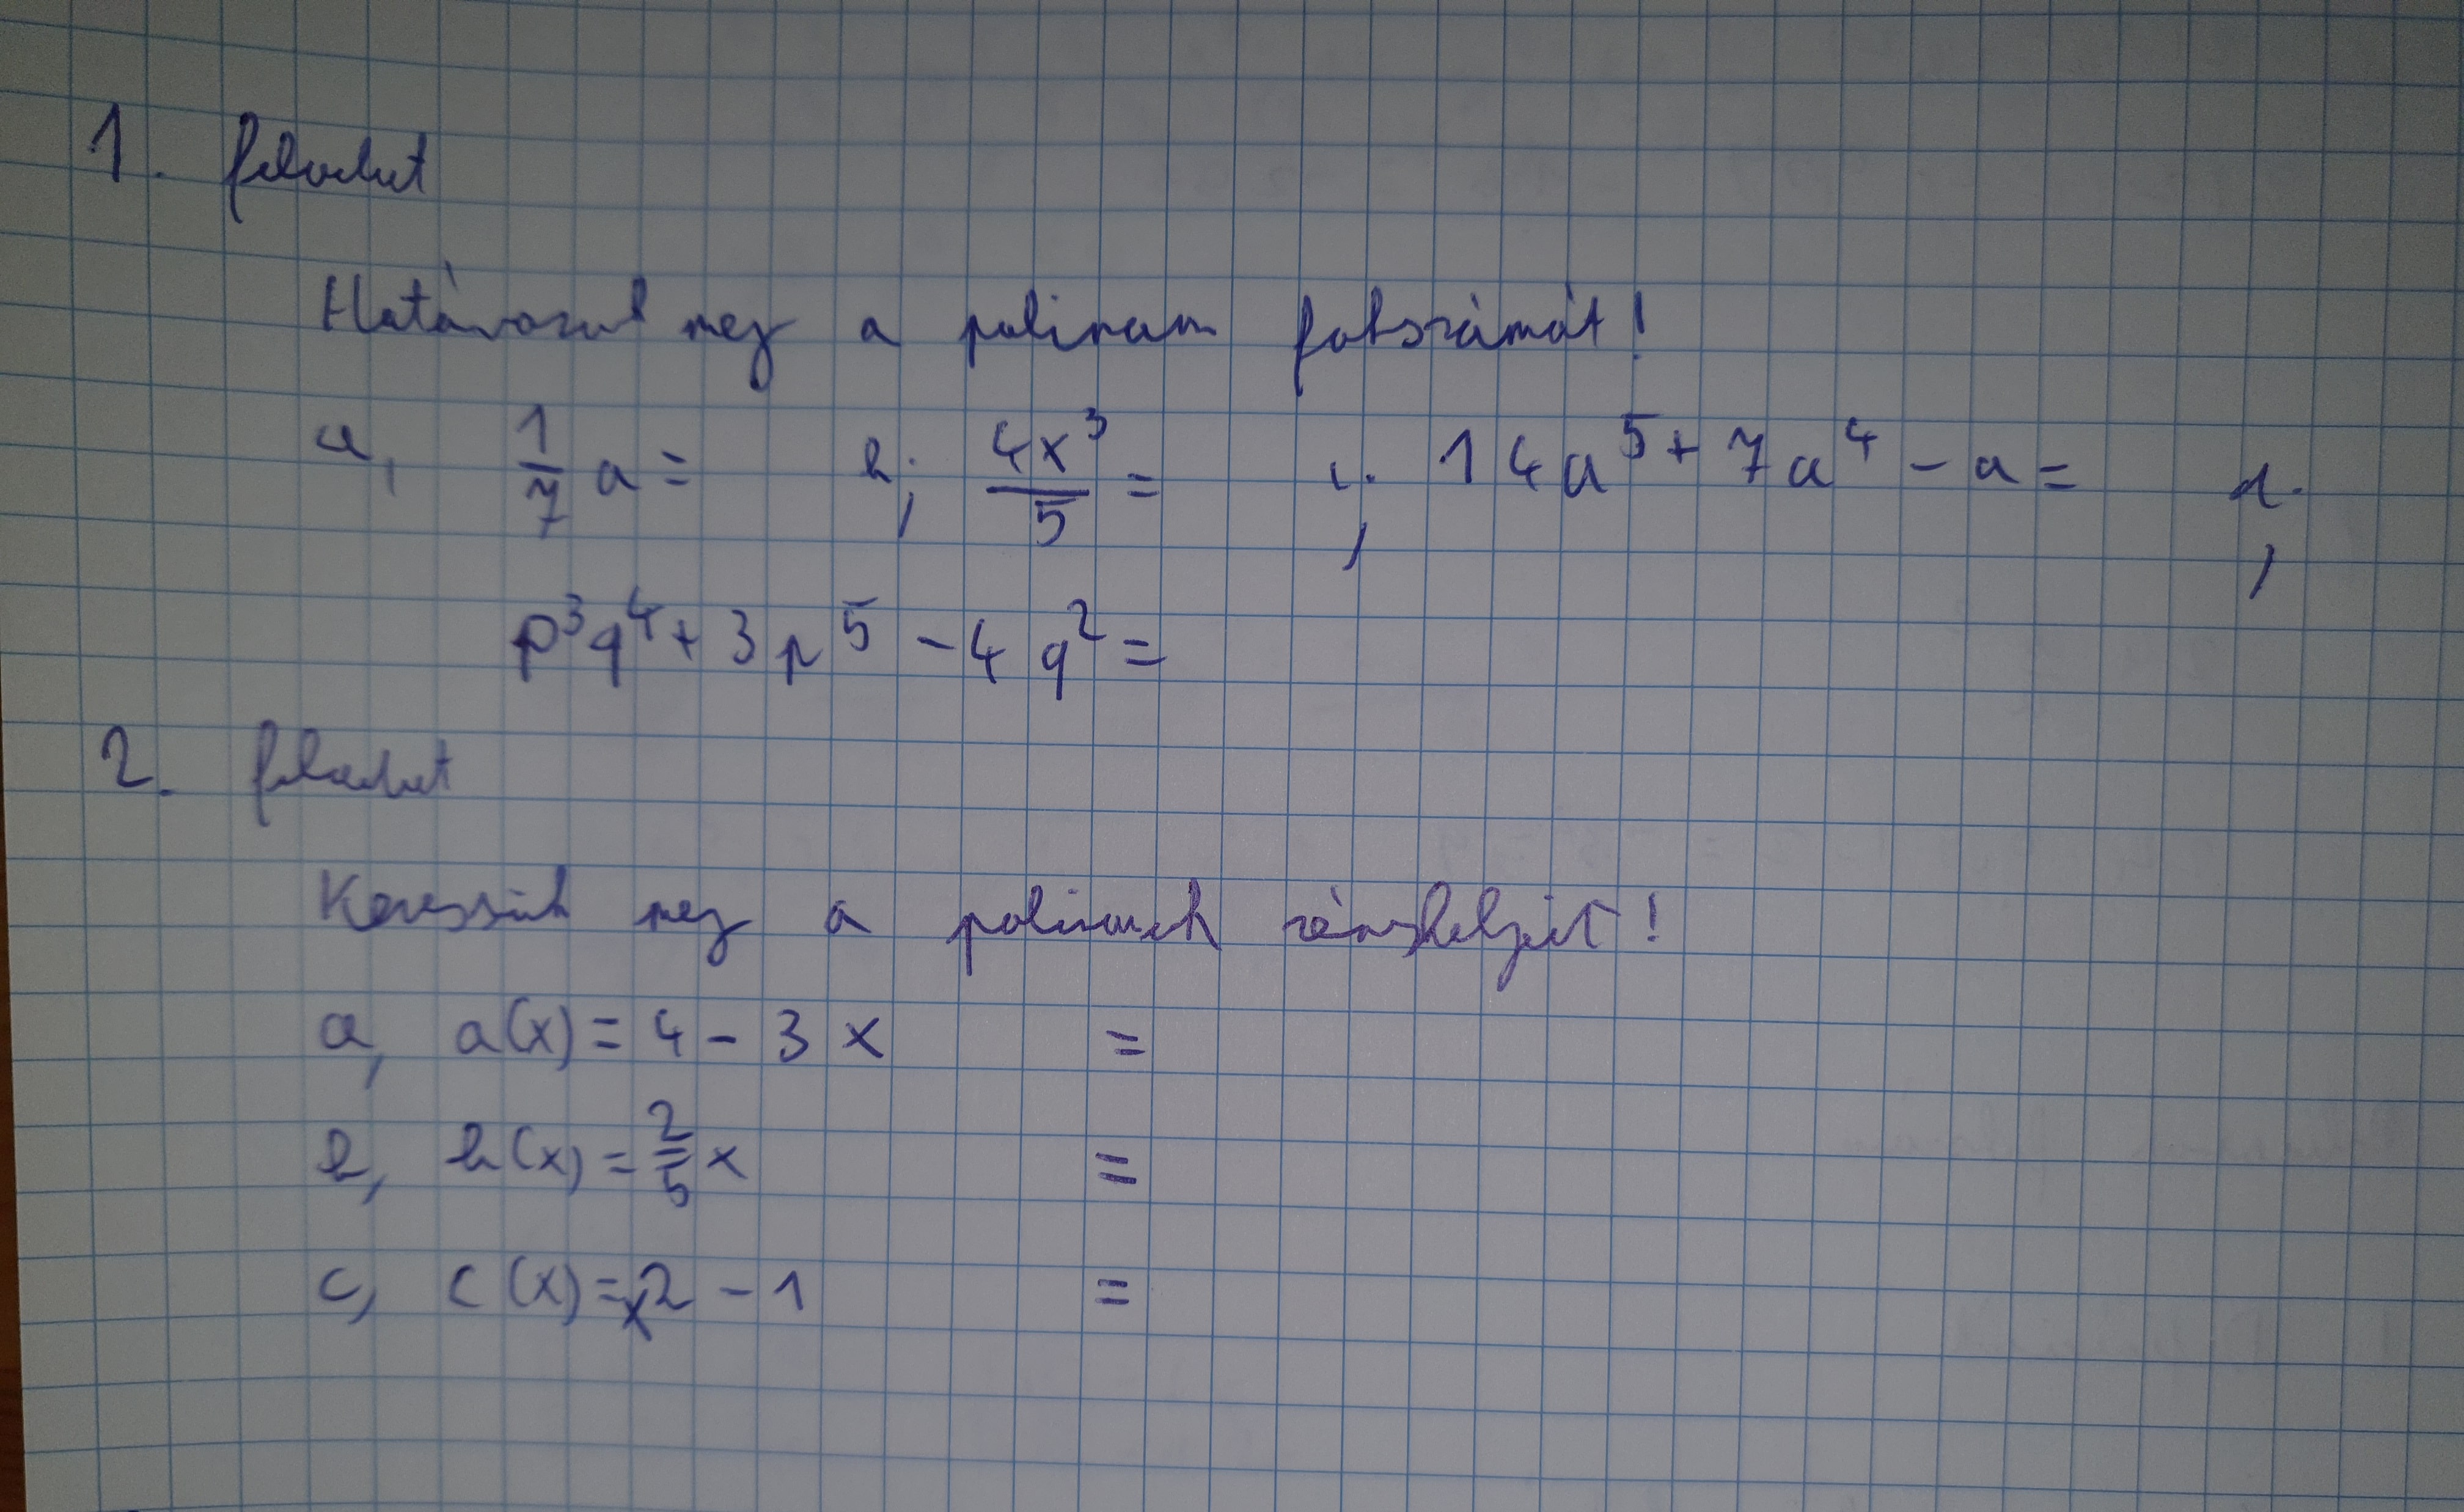 1. feladat
Határozd meg a polinom fokszámát!
a, 1/7 a = b; 4x³/5 = c; 14a⁵ + 7a⁴ - a = d;
p³q⁴ + 3p⁵ - 4q² =
2. feladat
Keressük meg a polinomok zérushelyeit!
a, a(x) = 4 - 3x =
b, b(x) = 2/5 x =
c, c(x) = x2 - 1 =